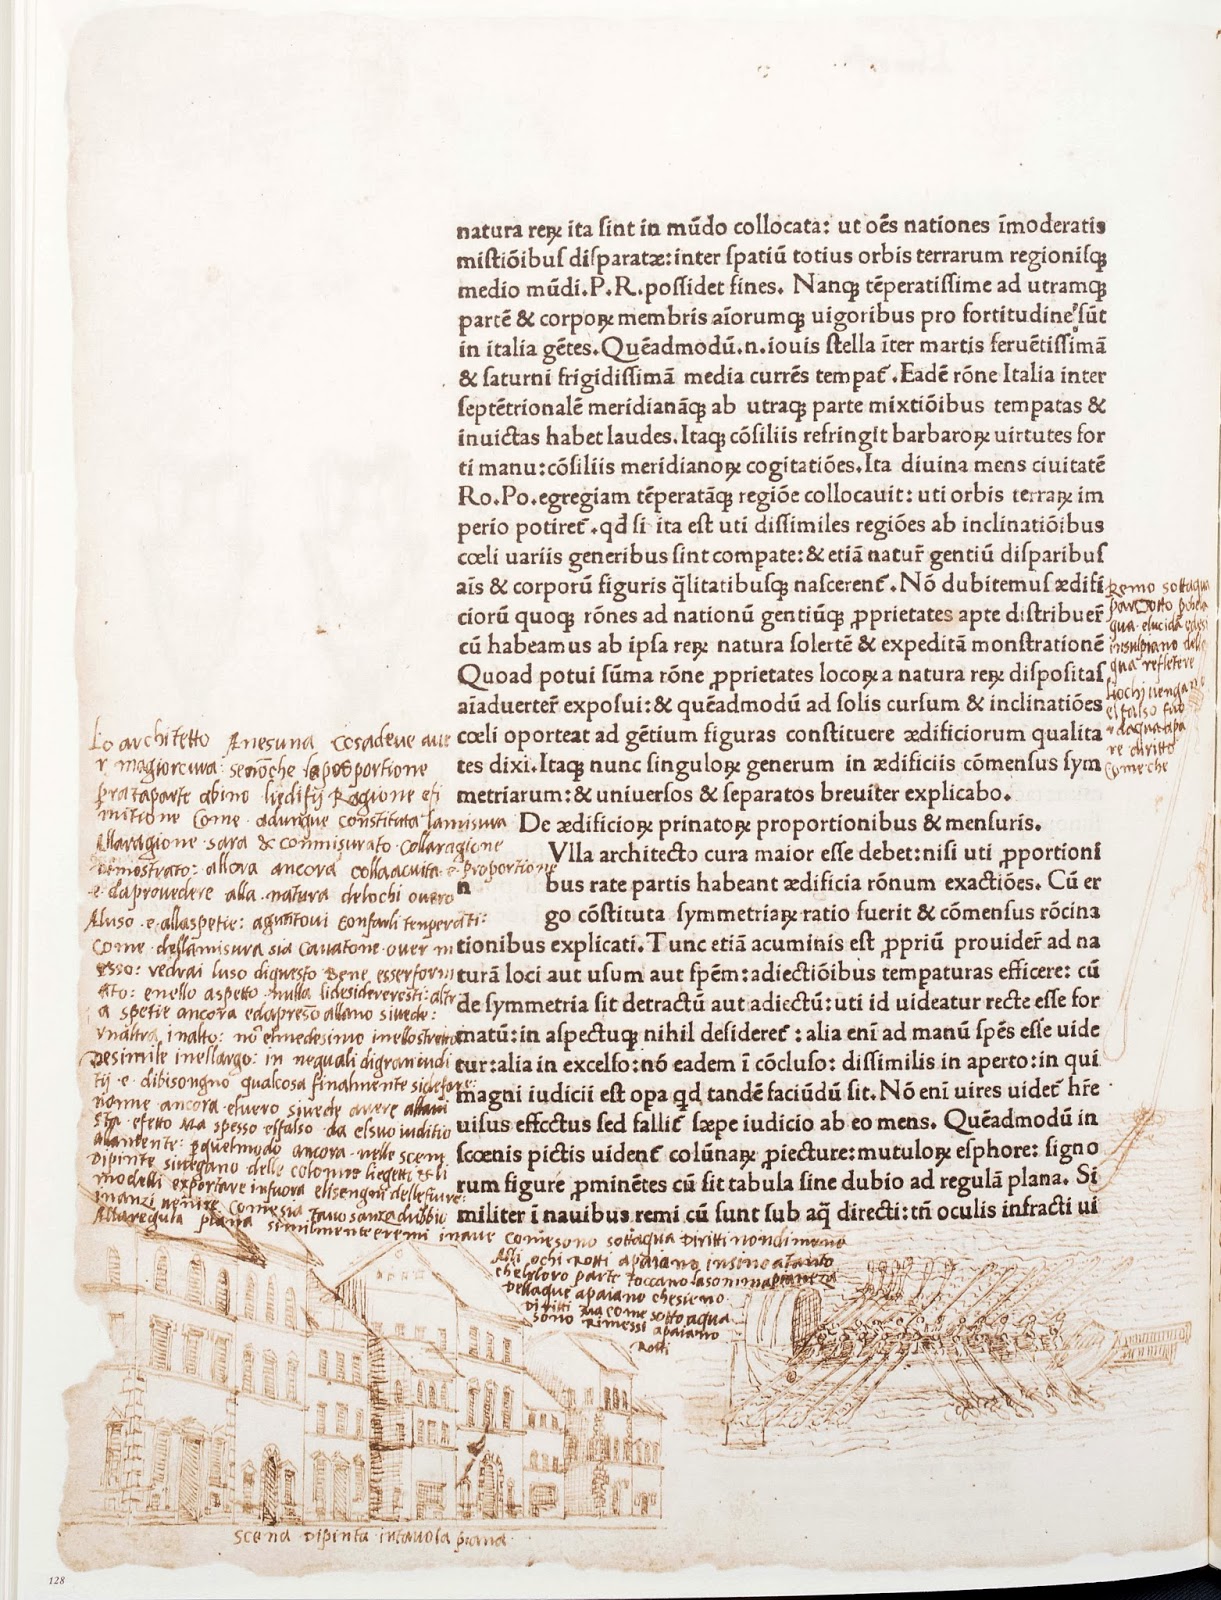 natura reꝝ ita sint in mūdo collocata: ut oēs nationes īmoderatis
mistiōibus disparatæ: inter spatiū totius orbis terrarum regionisqꝫ
medio mūdi. P. R. possidet fines. Nanqꝫ tēperatissime ad utramqꝫ
partē & corpoꝝ membris aīorumqꝫ uigoribus pro fortitudine sūt
in italia gētes. Quēadmodū. n. iouis stella īter martis feruētissimā
& saturni frigidissimā media currēs tempat̄. Eadē rōne Italia inter
septētrionalē meridianāqꝫ ab utraqꝫ parte mixtiōibus tempatas &
inuictas habet laudes. Itaqꝫ cōsiliis refringit barbaroꝝ uirtutes for
ti manu: cōsiliis meridianoꝝ cogitatiōes. Ita diuina mens ciuitatē
Ro. Po. egregiam tēperatāqꝫ regiōe collocauit: uti orbis terraꝝ im
perio potiret̄. qd̄ si ita est uti dissimiles regiōes ab inclinatiōibus
cœli uariis generibus sint compate: & etiā natur̄ gentiū disparibus
aīs & corporū figuris q̄litatibusqꝫ nascerent̄. Nō dubitemus ædifi
ciorū quoqꝫ rōnes ad nationū gentiūqꝫ ꝓprietates apte distribuer̄
cū habeamus ab ipsa reꝝ natura solertē & expeditā monstrationē
Quoad potui sūma rōne ꝓprietates locoꝝ a natura reꝝ dispositas
aīaduerter̄ exposui: & quēadmodū ad solis cursum & inclinatiōes
cœli oporteat ad gētium figuras constituere ædificiorum qualita
tes dixi. Itaqꝫ nunc singuloꝝ generum in ædificiis cōmensus sym
metriarum: & uniuersos & separatos breuiter explicabo.
De ædificioꝝ prinatoꝝ proportionibus & mensuris.
Vlla architecto cura maior esse debet: nisi uti ꝓportioni
n bus rate partis habeant ædificia rōnum exactiōes. Cū er
go cōstituta symmetriaꝝ ratio fuerit & cōmensus rōcina
tionibus explicati. Tunc etiā acuminis est ꝓpriū prouider̄ ad na
turā loci aut usum aut spēm: adiectiōibus tempaturas efficere: cū
de symmetria sit detractū aut adiectū: uti id uideatur recte esse for
matū: in aspectuqꝫ nihil desideret̄: alia enī ad manū spēs esse uide
tur: alia in excelso: nō eadem ī cōcluso: dissimilis in aperto: in qui
magni iudicii est opa qd̄ tandē faciūdū sit. Nō enī uires uidet̄ hr̄e
uisus effectus sed fallit̄ sæpe iudicio ab eo mens. Quēadmodū in
scœnis pictis uident̄ colūnaꝝ ꝓiecture: mutuloꝝ esphore: signo
rum figure ꝓminētes cū sit tabula sine dubio ad regulā plana. Si
militer ī nauibus remi cū sunt sub aq̄ directi: tn̄ oculis infracti ui
Lo architetto Anesuna cosa deve ave
r magior cura: senōche la proportione
prataparte abino li edifitij Ragione efi
nitione come adunque constituta la misura
Alla ragione sara & commisurato colla ragione
Demostrato: allora ancora colla acuita e proportione
e da provedere alla natura de lochi overo
A luso e alla spetie: agiuntovi
come della misura sia cavatone over m
esso: vedrai luso di questo Bene esser form
ato: e nello aspetto nulla li desidereresti: altr
a spetie ancora e da preso a mano si vede:
Vnaltra in alto: nō el medesimo
desimile nel largo: in
tij e di bisongno qualcosa finalmente
nonne ancora el vero si vede avere
efetto Ma spesso è falso da el suo iuditio
ancora nelle scene
Dipinte si negano delle colonne li egetti & li
modelli exportare infuora e li sengni delle figure
inanzi venire come sia tavo sanza dubbio
Alla regula piana similmente e remi in nave come sono sottaqua Diritti nondimeno
Alli ochi Rotti apaiano insino a tanto
che loro parte toccano la somma pianeza
Dell aque apaiano che sieno
Diritti Ma come sotto aqua
sono Rimessi apaiano
Rotti
Remo sottaqua
par Rotto
qua e lucida
qua refletere
li ochi
el falso
re diritto
come che
scena dipinta in tavola piana
128